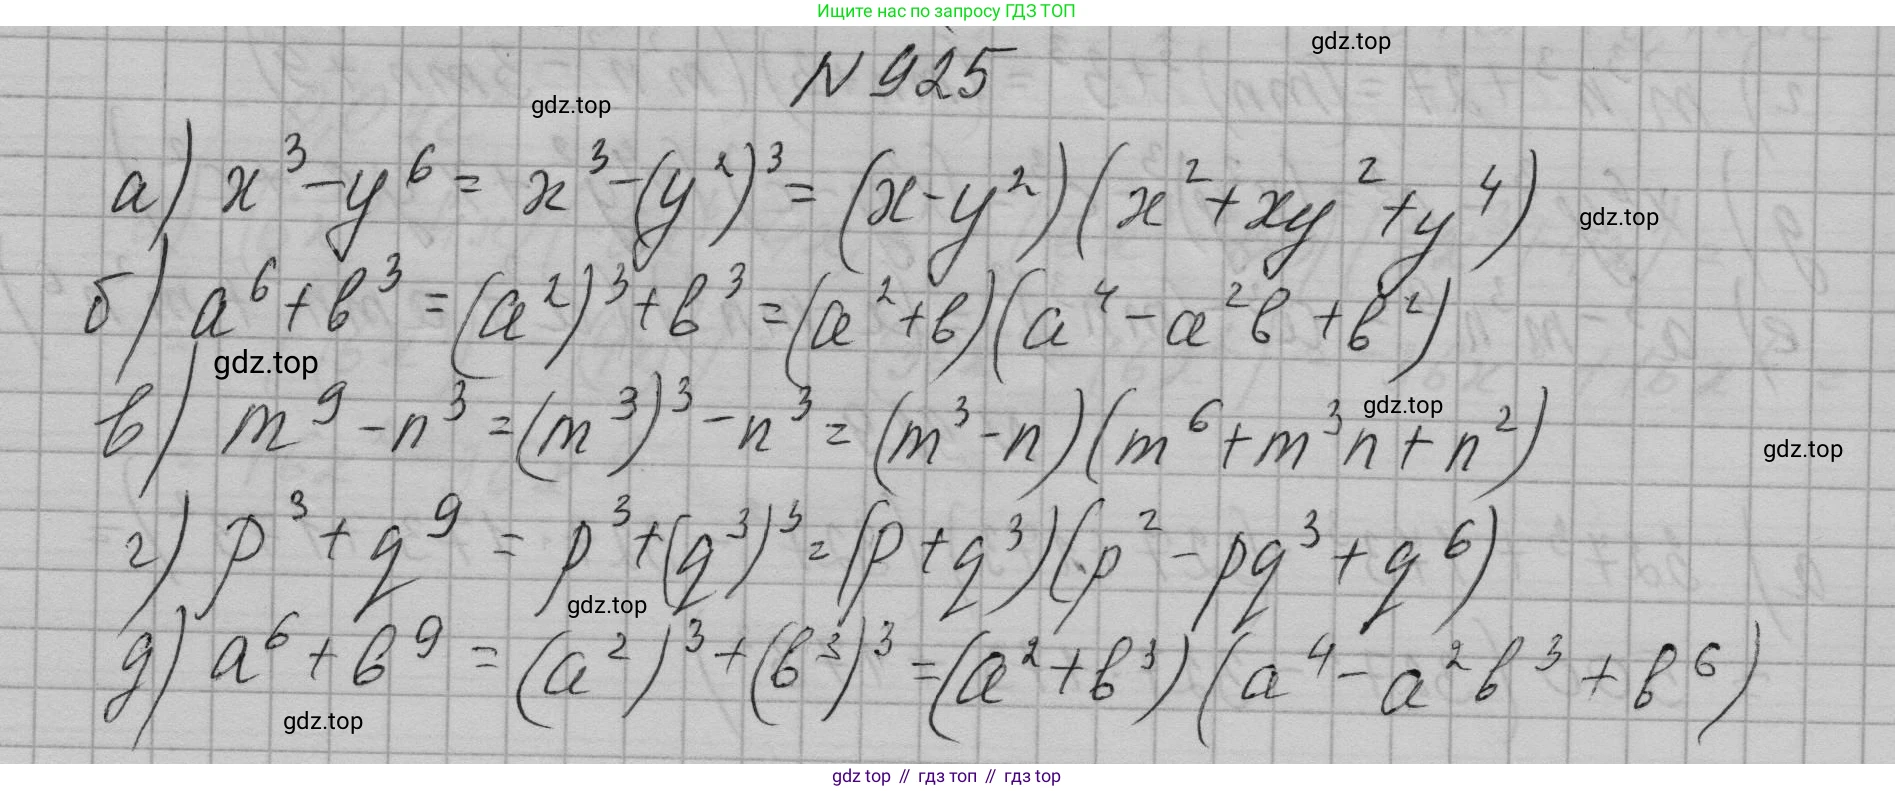 Ищите нас по запросу ГДЗ ТОП
gdz.top
N 925
gdz.top
а) x³ - y⁶ = x³ - (y²)³ = (x - y²)(x² + xy² + y⁴)
gdz.top
б) a⁶ + b³ = (a²)³ + b³ = (a² + b)(a⁴ - a²b + b²)
gdz.top
в) m⁹ - n³ = (m³)³ - n³ = (m³ - n)(m⁶ + m³n + n²)
gdz.top
gdz.top
г) p³ + q⁹ = p³ + (q³)³ = (p + q³)(p² - pq³ + q⁶)
gdz.top
д) a⁶ + b⁹ = (a²)³ + (b³)³ = (a² + b³)(a⁴ - a²b³ + b⁶)
gdz.top
gdz top // гдз топ // гдз top